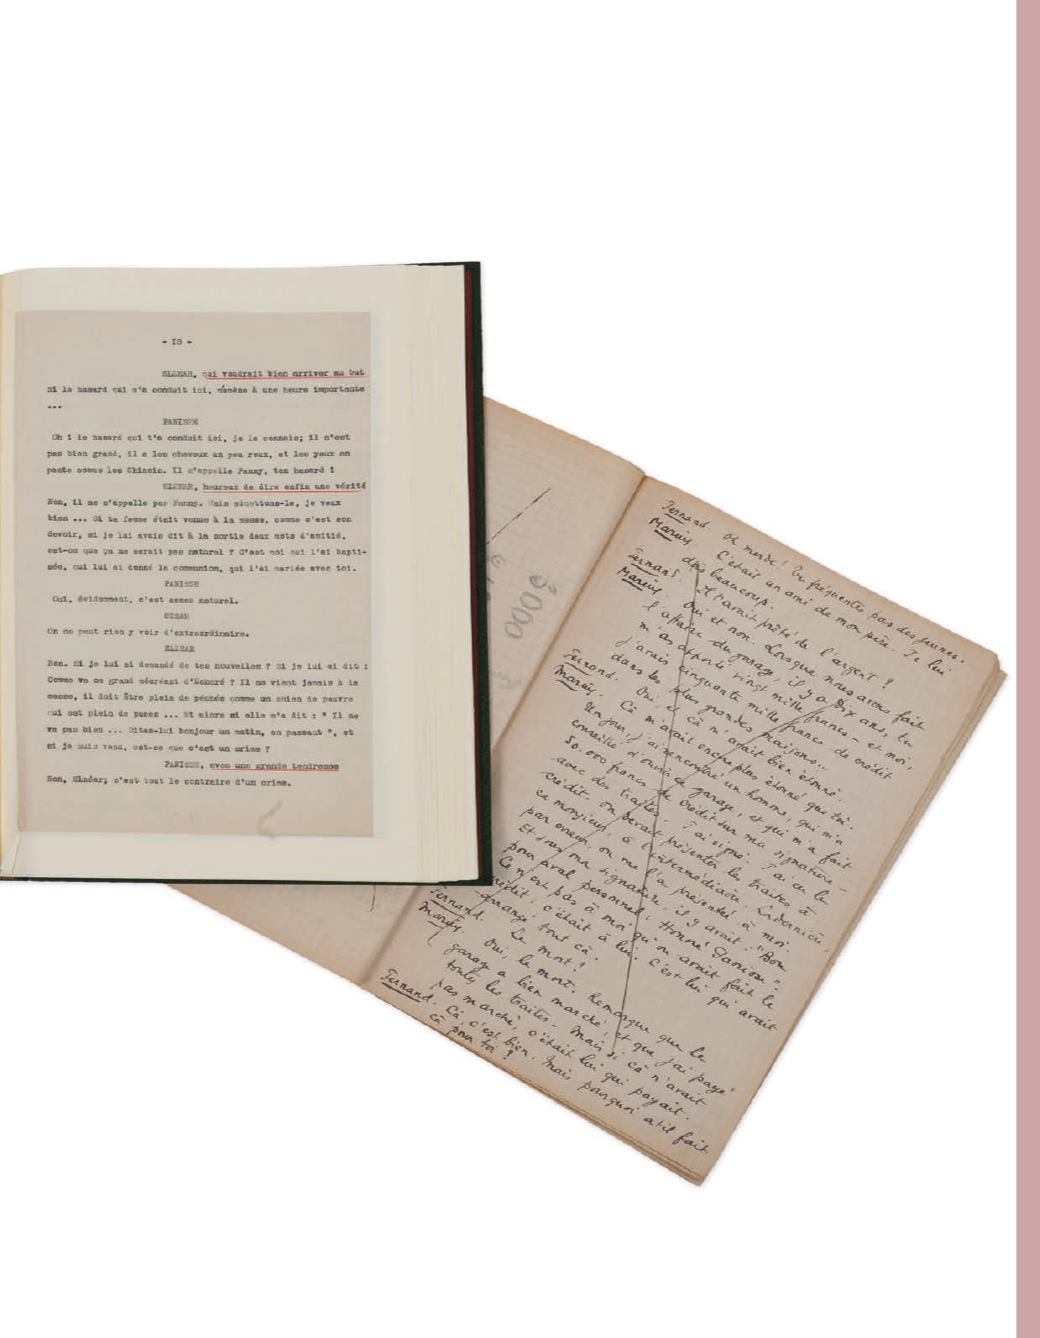 - 18 -
ELZEAR, qui voudrait bien arriver au but
Si le hasard qui m'a conduit ici, m'amène à une heure importante
...
PANISSE
Oh ! le hasard qui t'a conduit ici, je le connais; il n'est
pas bien grand, il a les cheveux un peu roux, et les yeux en
pente comme les Chinois. Il s'appelle Fanny, ton hasard !
ELZEAR, heureux de dire enfin une vérité
Non, il ne s'appelle pas Fanny. Mais admettons-le, je veux
bien ... Si ta femme était venue à la messe, comme c'est son
devoir, si je lui avais dit à la sortie deux mots d'amitié,
est-ce que ça ne serait pas naturel ? C'est moi qui l'ai bapti-
sée, qui lui ai donné la communion, qui l'ai mariée avec toi.
PANISSE
Oui, évidemment, c'est assez naturel.
CESAR
On ne peut rien y voir d'extraordinaire.
ELZEAR
Bon. Si je lui ai demandé de tes nouvelles ? Si je lui ai dit :
Comme va ce grand mécréant d'Honoré ? Il ne vient jamais à la
messe, il doit être plein de péchés comme un chien de pauvre
qui est plein de puces ... Et alors si elle m'a dit : " Il ne
va pas bien ... Dites-lui bonjour un matin, en passant ", et
si je suis venu, est-ce que c'est un crime ?
PANISSE, avec une grande tendresse
Non, Elzéar; c'est tout le contraire d'un crime.
000
Fernand. Oh merde ! Tu fréquentes pas des jeunes.
Marius. C'était un ami de mon père. Je lui
dois beaucoup.
Fernand. Il t'avait prêté de l'argent ?
Marius. Oui et non. Lorsque nous avons fait
l'affaire du garage, il y a dix ans, tu
m'as apporté vingt mille francs - et moi,
j'avais cinquante mille francs de crédit
dans les plus grandes maisons...
Fernand. Oui, et çà m'avait bien étonné.
Marius. Çà m'avait encore plus étonné que toi.
Un jour, j'ai rencontré un homme, qui m'a
conseillé d'ouvrir ce garage, et qui m'a fait
50.000 francs de crédit sur ma signature -
avec des traites. J'ai signé. J'ai eu le
crédit. On devait présenter les traites à
ce monsieur, à l'intermédiaire. La dernière,
par erreur, on me l'a présentée à moi.
Et sous ma signature, il y avait : "Bon
pour aval personnel : Honoré Panisse."
Ce n'est pas à moi qu'on avait fait le
crédit : c'était à lui. C'est lui qui avait
arrangé tout çà.
Fernand. Le mort ?
Marius. Oui, le mort. Remarque que le
garage a bien marché, et que j'ai payé
toutes les traites. Mais si çà n'avait
pas marché, c'était lui qui payait.
Fernand. Çà, c'est bien. Mais pourquoi a t'il fait
çà pour toi ?